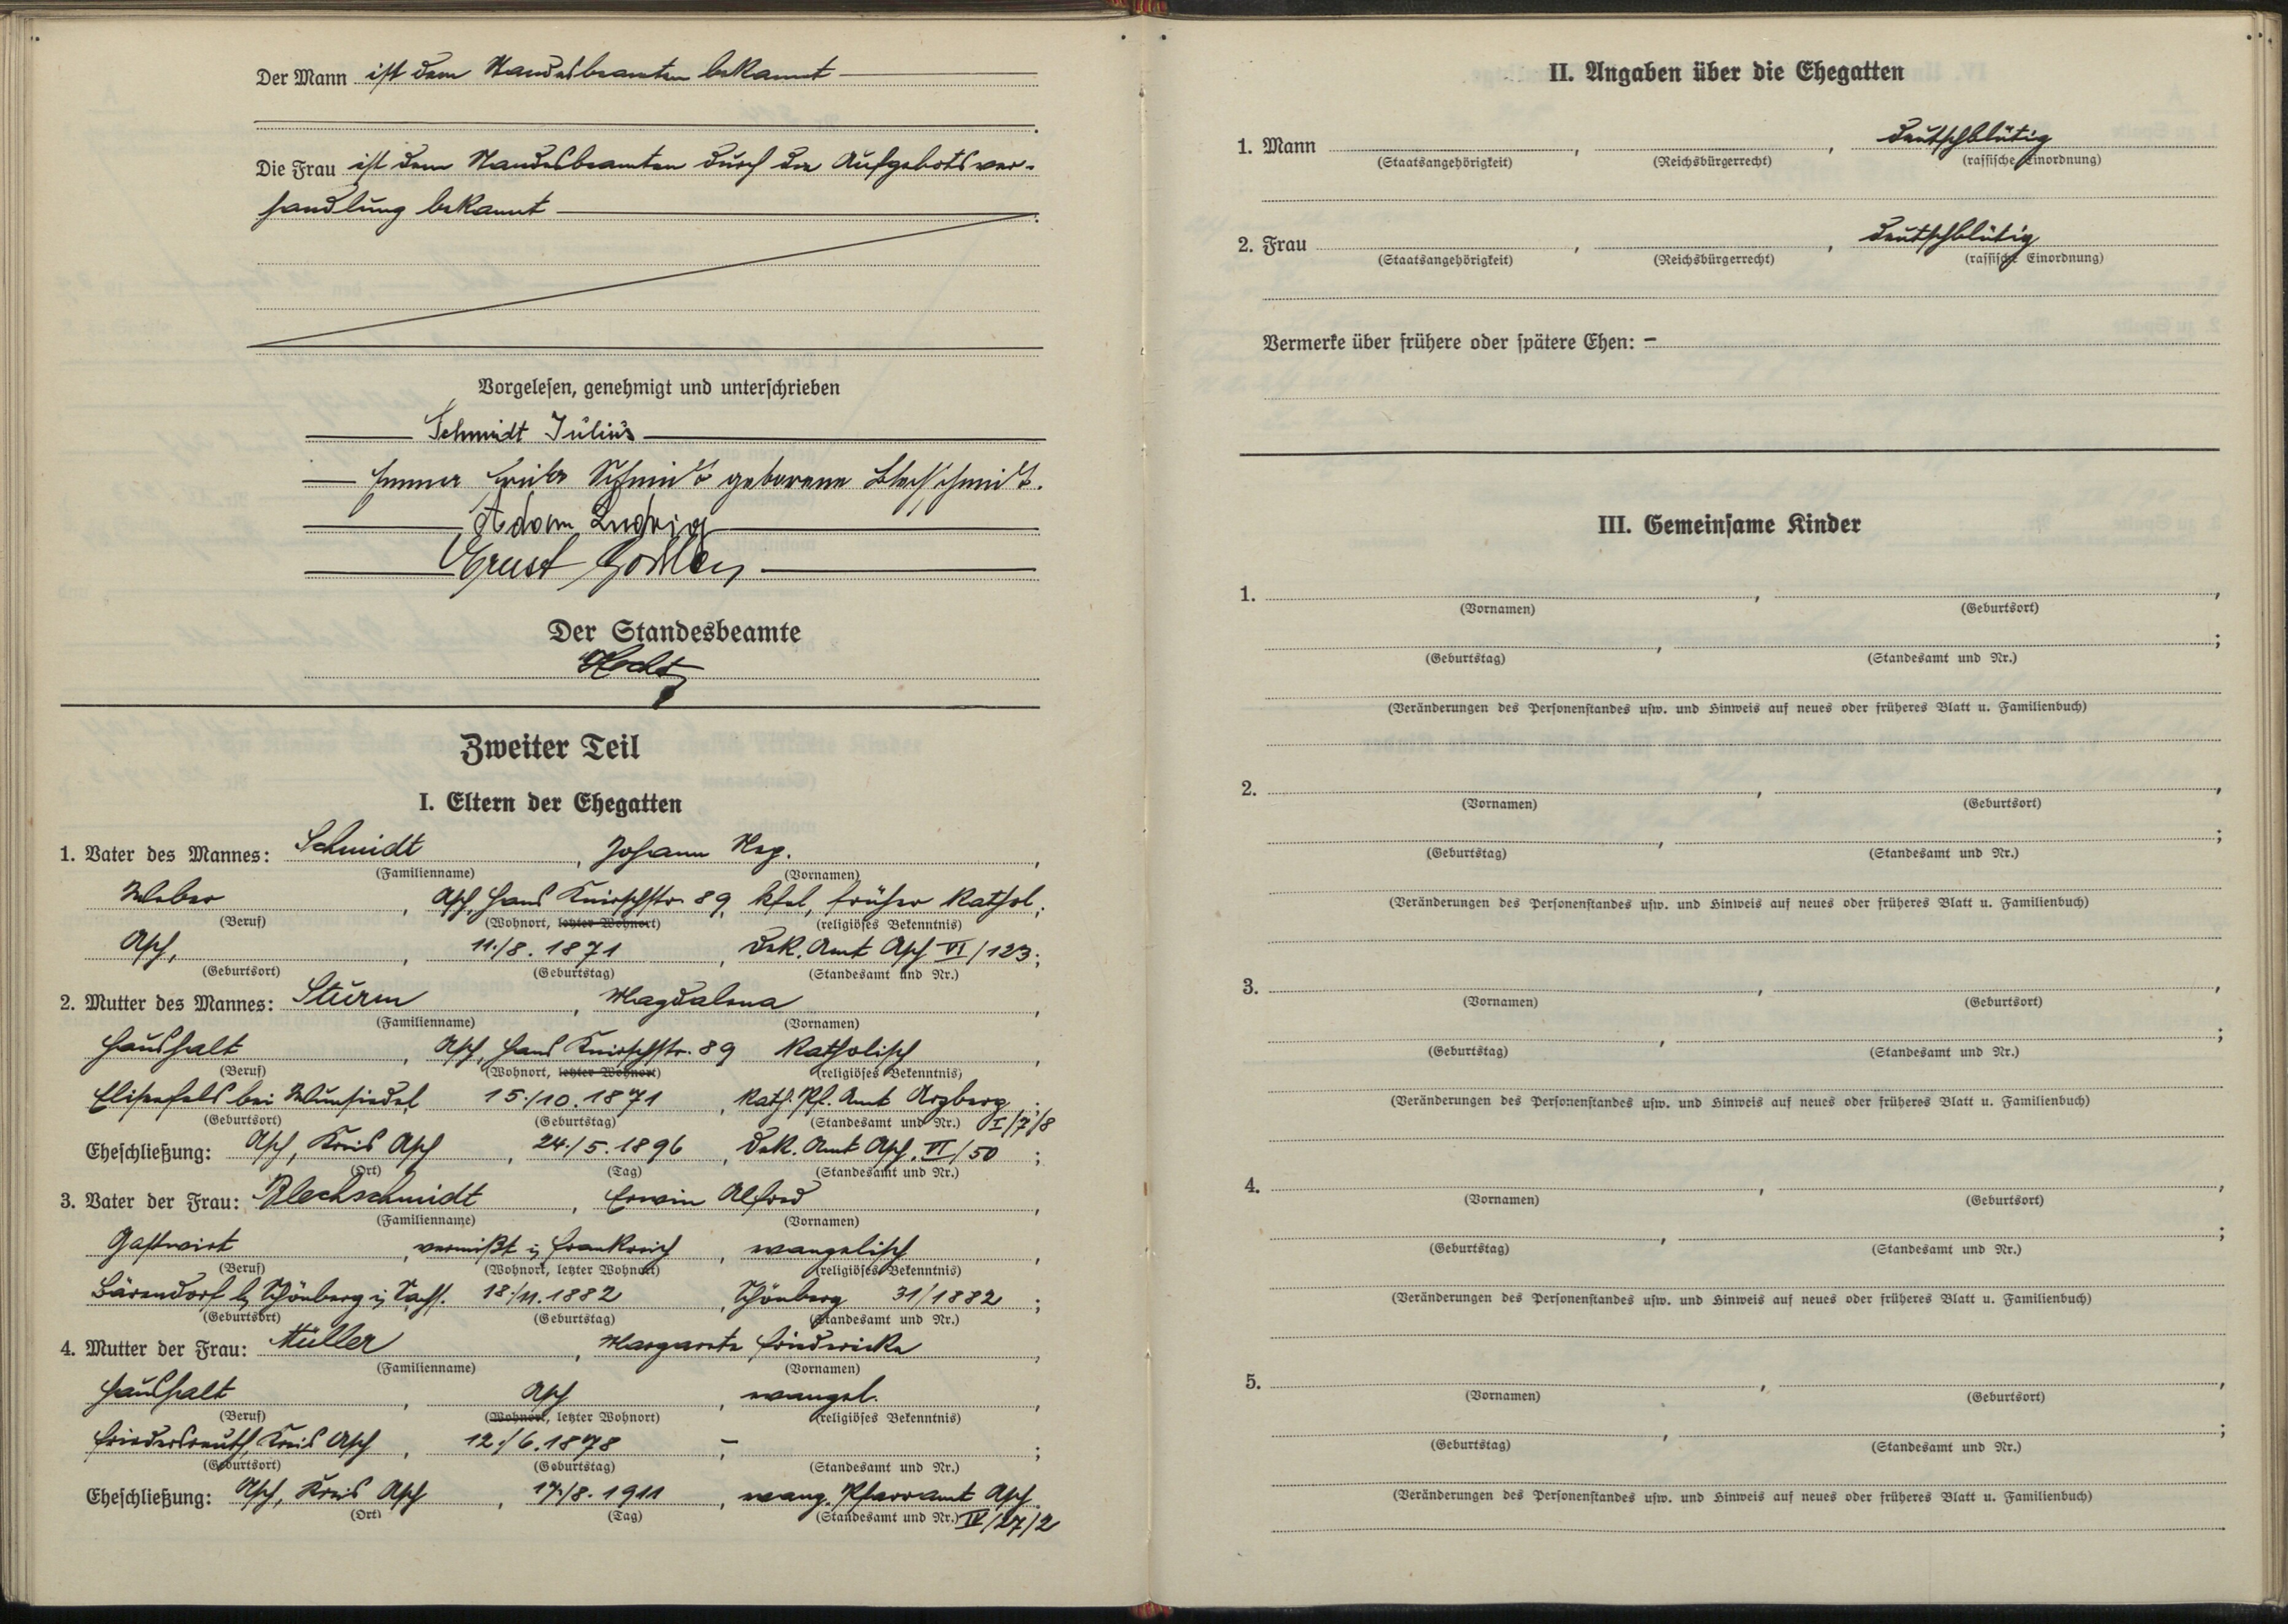 Der Mann ist dem Standesbeamten bekannt
Die Frau ist dem Standesbeamten durch die Aufgebotsver-
handlung bekannt
Vorgelesen, genehmigt und unterschrieben
Schmidt Julius
Schmidt geborene Blechschmidt.
Adam Ludwig
Ernst
Der Standesbeamte
Hecht
Zweiter Teil
I. Eltern der Ehegatten
1. Vater des Mannes: Schmidt, Johann
(Familienname) (Vornamen)
Weber, Asch, Hans Knirschstr. 89, früher kathol.;
(Beruf) (Wohnort, letzter Wohnort) (religiöses Bekenntnis)
Asch, 11./8. 1871, Dek. Amt Asch VI/123;
(Geburtsort) (Geburtstag) (Standesamt und Nr.)
2. Mutter des Mannes: Sturm, Magdalena,
(Familienname) (Vornamen)
Haushalt, Asch, Hans Knirschstr. 89 katholisch,
(Beruf) (Wohnort, letzter Wohnort) (religiöses Bekenntnis)
Elisenfels bei Wunsiedel 15./10. 1871, Kath. Pf. Amt Arzberg;
(Geburtsort) (Geburtstag) (Standesamt und Nr.) I/7/8
Eheschließung: Asch, Kreis Asch, 24./5. 1896, Dek. Amt Asch, VI/50;
(Ort) (Tag) (Standesamt und Nr.)
3. Vater der Frau: Blechschmidt, Erwin Alfred,
(Familienname) (Vornamen)
Gastwirt, vermißt i. Frankreich, evangelisch,
(Beruf) (Wohnort, letzter Wohnort) (religiöses Bekenntnis)
Bärendorf b. Schönberg i. Sachs. 18./11. 1882, Schönberg 31/1882;
(Geburtsort) (Geburtstag) (Standesamt und Nr.)
4. Mutter der Frau: Müller, Margareta Friedericke,
(Familienname) (Vornamen)
Haushalt, Asch, evangel.,
(Beruf) (Wohnort, letzter Wohnort) (religiöses Bekenntnis)
Friedersreuth, Kreis Asch, 12./6. 1878, -;
(Geburtsort) (Geburtstag) (Standesamt und Nr.)
Eheschließung: Asch, Kreis Asch, 17./8. 1911, evang. Pfarramt Asch
(Ort) (Tag) (Standesamt und Nr.) IV/27/2
II. Angaben über die Ehegatten
1. Mann , , deutschblütig
(Staatsangehörigkeit) (Reichsbürgerrecht) (rassische Einordnung)
2. Frau , , deutschblütig
(Staatsangehörigkeit) (Reichsbürgerrecht) (rassische Einordnung)
Vermerke über frühere oder spätere Ehen: -
III. Gemeinsame Kinder
1. , ,
(Vornamen) (Geburtsort)
, ;
(Geburtstag) (Standesamt und Nr.)
(Veränderungen des Personenstandes usw. und Hinweis auf neues oder früheres Blatt u. Familienbuch)
2. , ,
(Vornamen) (Geburtsort)
, ;
(Geburtstag) (Standesamt und Nr.)
(Veränderungen des Personenstandes usw. und Hinweis auf neues oder früheres Blatt u. Familienbuch)
3. , ,
(Vornamen) (Geburtsort)
, ;
(Geburtstag) (Standesamt und Nr.)
(Veränderungen des Personenstandes usw. und Hinweis auf neues oder früheres Blatt u. Familienbuch)
4. , ,
(Vornamen) (Geburtsort)
, ;
(Geburtstag) (Standesamt und Nr.)
(Veränderungen des Personenstandes usw. und Hinweis auf neues oder früheres Blatt u. Familienbuch)
5. , ,
(Vornamen) (Geburtsort)
, ;
(Geburtstag) (Standesamt und Nr.)
(Veränderungen des Personenstandes usw. und Hinweis auf neues oder früheres Blatt u. Familienbuch)